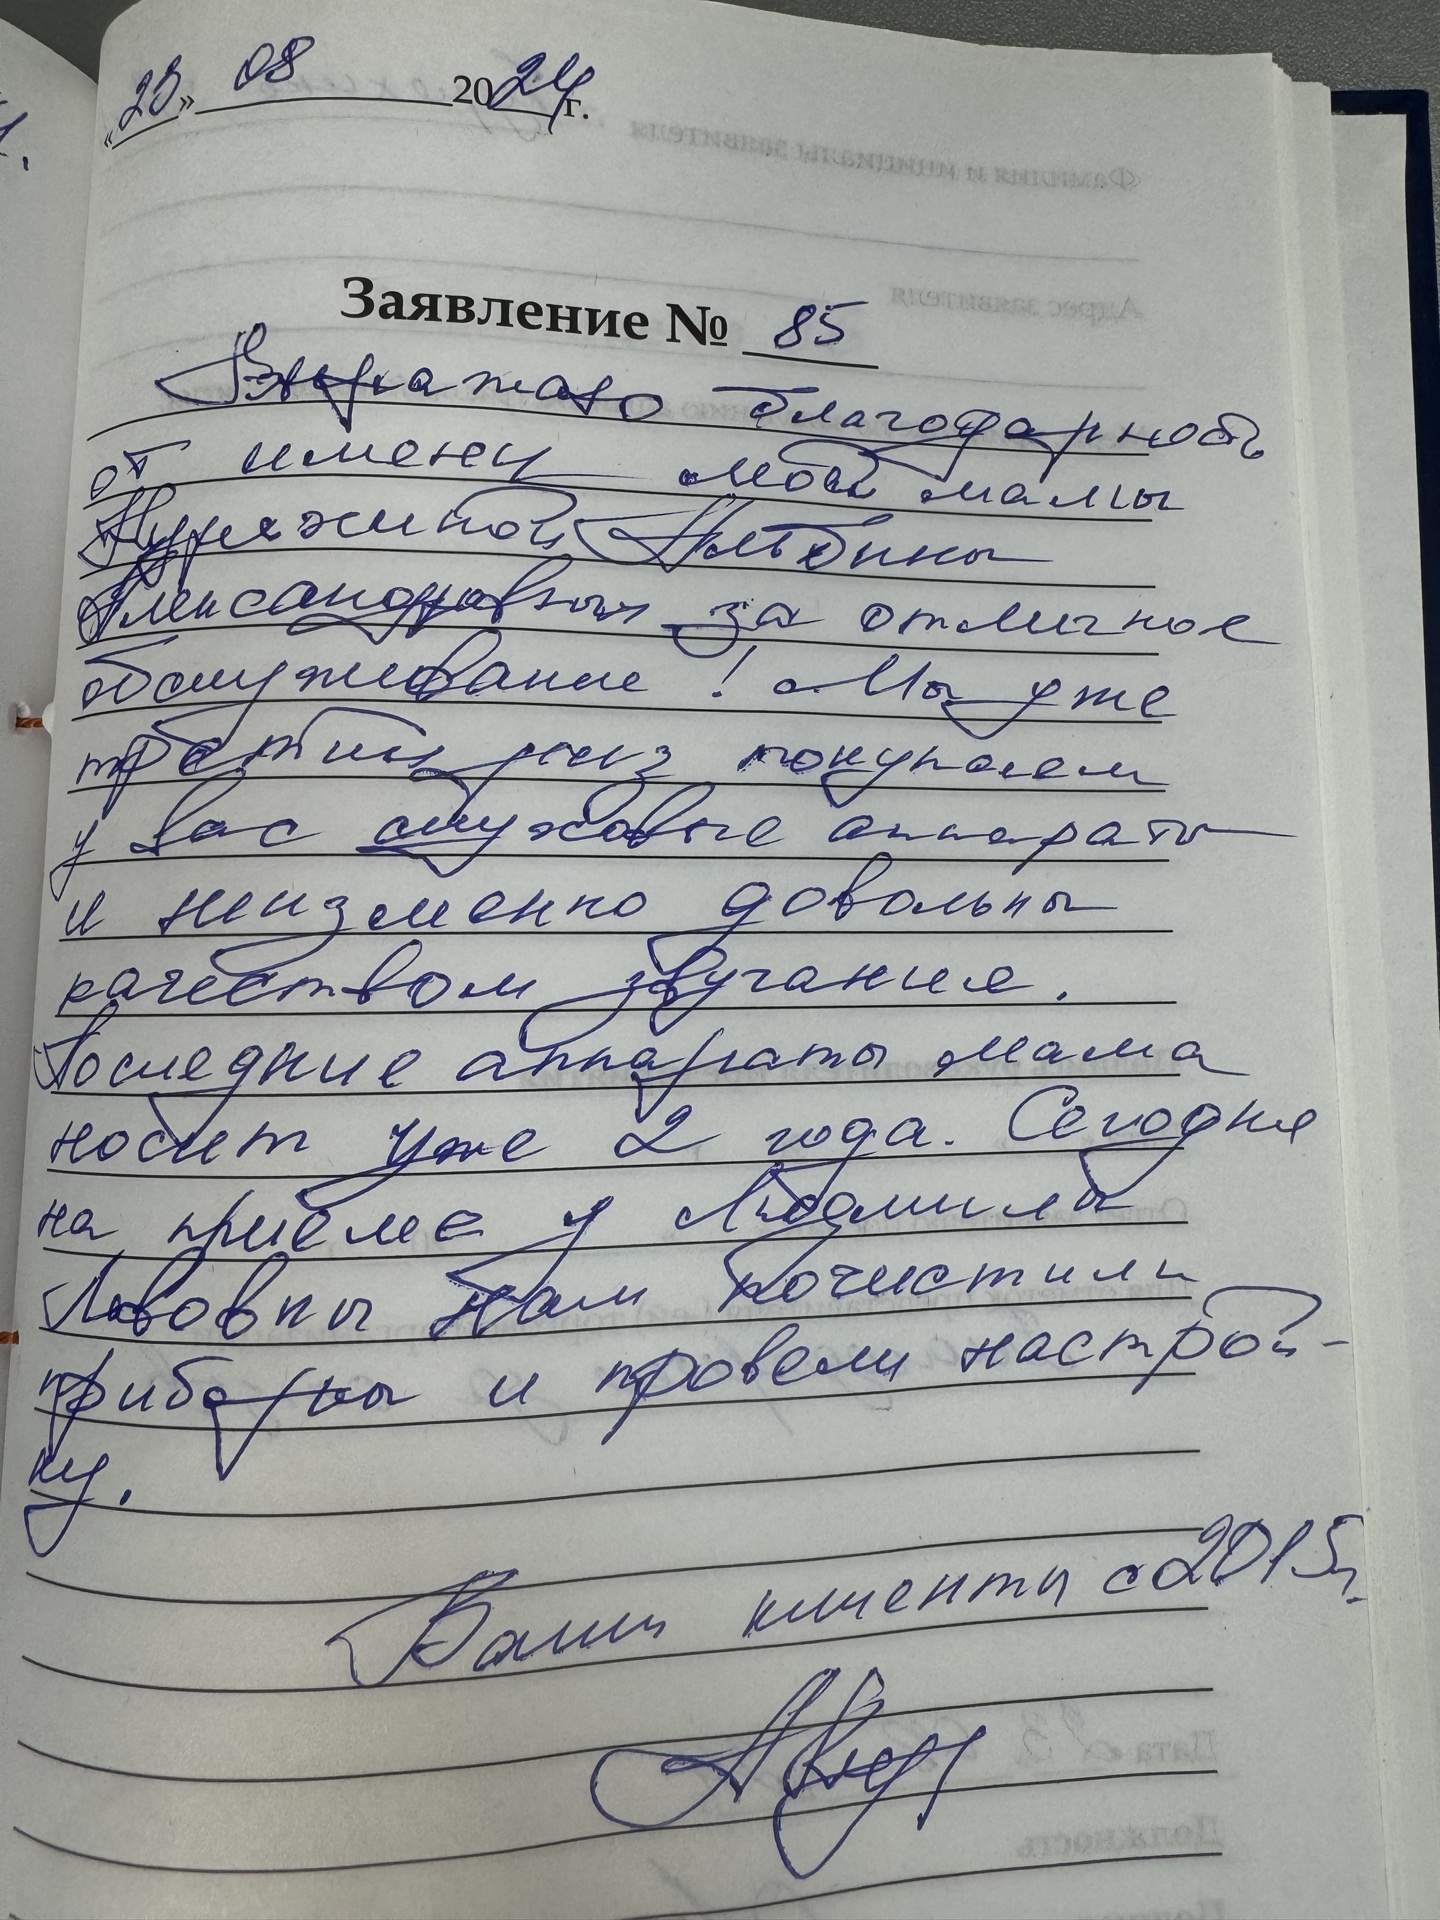 «23» 08 2024 г.
Заявление № 85
Выражаю благодарность
от имени моей мамы
Альбины
Александровны за отличное
обслуживание! Мы уже
третий раз покупаем
у вас слуховые аппараты
и неизменно довольны
качеством звучания.
Последние аппараты мама
носит уже 2 года. Сегодня
на приёме у Людмилы
Львовны нам почистили
приборы и провели настрой-
ку.
Ваши клиенты с 2015г.
Фамилия и инициалы заявителя
Адрес заявителя
Дата
Должность